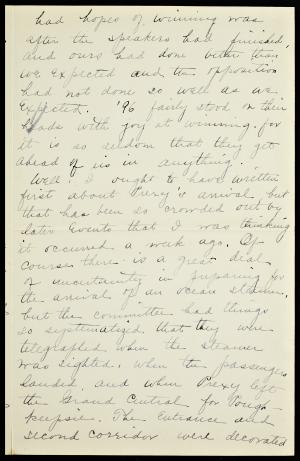 had hopes of winning was
after the speakers had finished,
and ours had done better than
we expected and the opposition
had not done so well as we
expected. '96 fairly stood on their
heads with joy at winning. for
it is so seldom that they get
ahead of us in anything.
Well. I ought to have written
first about Prexy's arrival but
that has been so crowded out by
later events that I was thinking
it occurred a week ago. Of
course there is a great deal
of uncertainty in preparing for
the arrival of an ocean steamer,
but the committee had things
so systematized that they were
telegraphed when the steamer
was sighted, when the passengers
landed, and when Prexy left
the Grand Central for Pough-
keepsie. The entrance and
second corridor were decorated